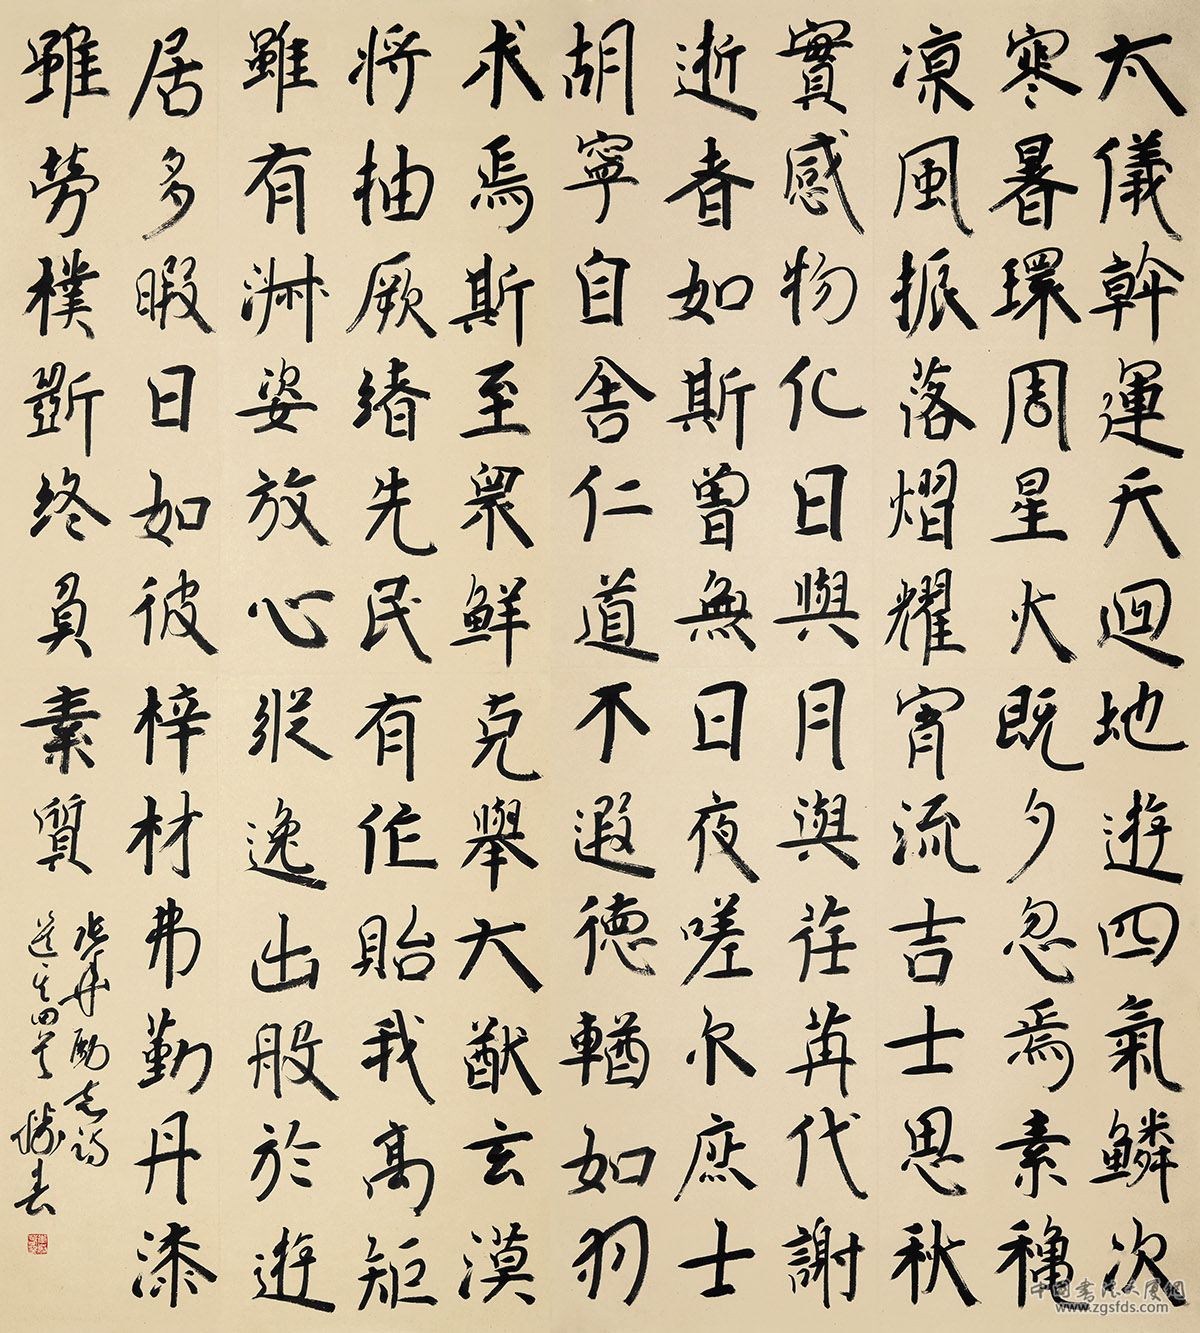 太儀斡運天迴地遊四氣鱗次
寒暑環周星火既夕忽焉素穐
凉風振落熠耀宵流吉士思秋
實感物化日與月與荏苒代謝
逝者如斯曾無日夜嗟尒庶士
胡寧自舍仁道不遐德輶如羽
求焉斯至衆鮮克舉大猷玄漠
將抽厥緒先民有作貽我高矩
雖有淑姿放心縱逸出般於遊
居多暇日如彼梓材弗勤丹漆
雖勞樸斲終負素質
張華勵志詩
www.zgsfds.com